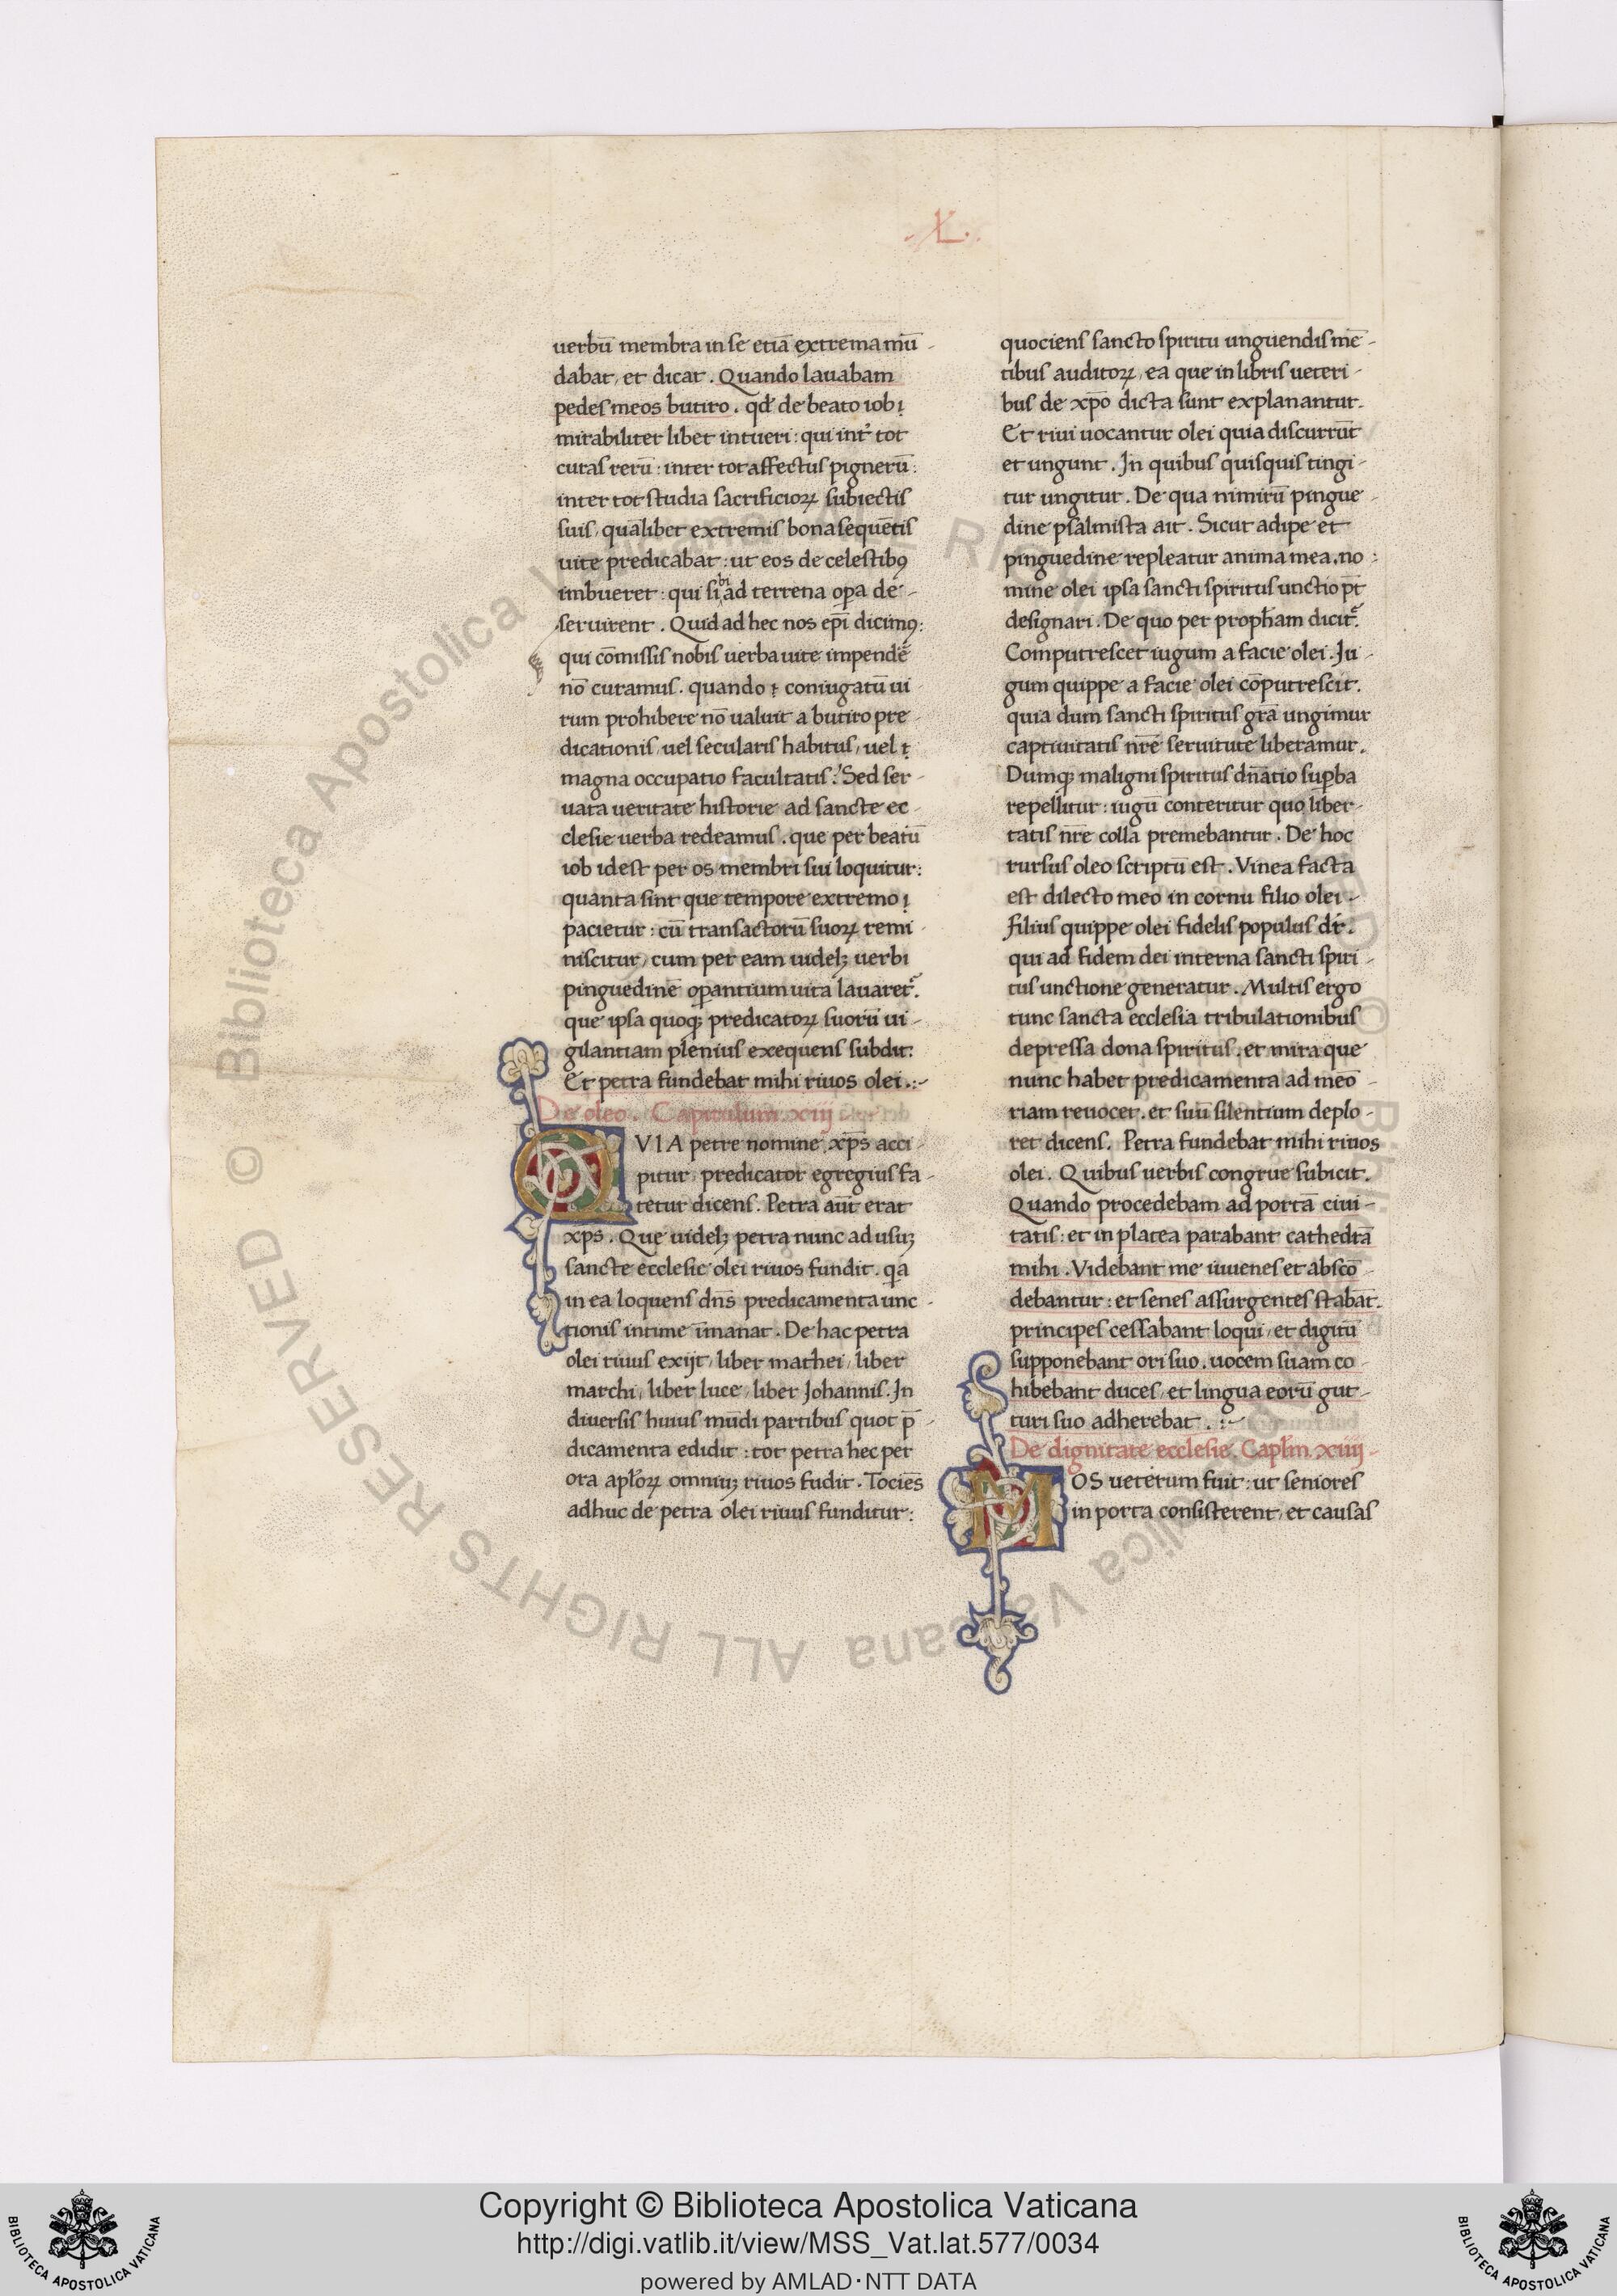 .XL.
uerbū membra in se etiā extrema mū-
dabat, et dicat. Quando lauabam
pedes meos butiro. qđ de beato iob
mirabiliter libet intueri: qui int̄ tot
curas rerū: inter tot affectus pignerū:
inter tot studia sacrificioꝝ subiectis
suis, qualibet extremis bona sequētis
uite predicabat: ut eos de celestibꝰ
imbueret: qui sibi ad terrena opa de-
seruirent. Quid ad hec nos ep̄i dicimꝰ:
qui cōmissis nobis uerba uite impendē
nō curamus. quando ⁊ coniugatū ui
rum prohibere nō ualuit a butiro pre-
dicationis, uel secularis habitus, uel
magna occupatio facultatis: Sed ser-
uata ueritate historie ad sancte ec-
clesie uerba redeamus. que per beatū
iob idest per os membri sui loquitur:
quanta sint que tempore extremo
pacietur: cū transactorū suoꝝ remi-
niscitur, cum per eam uidelꝫ uerbi
pinguedine operantium uita lauaret̄.
que ipsa quoqꝫ predicatoꝝ suorū ui-
gilantiam plenius exequens subdit:
Et petra fundebat mihi riuos olei.:-
De oleo. Capitulum. xiij
QVIA petre nomine xp̄s acci-
pitur, predicator egregius fa-
tetur dicens. Petra aūt erat
xp̄s. Que uidelꝫ petra nunc ad usuꝫ
sancte ecclesie olei riuos fundit. qa
in ea loquens dn̄s predicamenta unc-
tionis intime īmanat. De hac petra
olei riuus exijt, liber mathei, liber
marchi, liber luce, liber Johannis. In
diuersis huius mūdi partibus quot p̄-
dicamenta edidit: tot petra hec per
ora apl̄oꝝ omniuꝫ riuos fudit. Tociēs
adhuc de petra olei riuus funditur:
quociens sancto spiritu unguendis mē-
tibus auditoꝝ, ea que in libris ueteri-
bus de xp̄o dicta sunt explanantur.
Et riui uocantur olei quia discurrūt
et ungunt. In quibus quisquis tingi-
tur ungitur. De qua nimirū pingue-
dine psalmista ait. Sicut adipe et
pinguedine repleatur anima mea. no:
mine olei ipsa sancti spiritus unctio p̄t
designari. De quo per proph̄am dicit̄.
Computrescet iugum a facie olei. Iu-
gum quippe a facie olei cōputrescit.
quia dum sancti spiritus gr̄a ungimur
captiuitatis nr̄e seruitute liberamur.
Dumqꝫ maligni spiritus dn̄atio supba
repellitur: iugū conteritur quo liber-
tatis nr̄e colla premebantur. De hoc
rursus oleo scriptū est. Vinea facta
est dilecto meo in cornu filio olei-
filius quippe olei fidelis populus dr̄.
qui ad fidem dei interna sancti spiri-
tus unctione generatur. Multis ergo
tunc sancta ecclesia tribulationibus
depressa dona spiritus, et mira que
nunc habet predicamenta ad meō-
riam reuocet. et suū silentium deplo-
ret dicens. Petra fundebat mihi riuos
olei. Quibus uerbis congrue subicit.
Quando procedebam ad portā ciui-
tatis: et in platea parabant cathedrā
mihi. Videbant me iuuenes et abscō-
debantur: et senes assurgentes stabāt.
principes cessabant loqui, et digitū
supponebant ori suo. uocem suam co-
hibebant duces, et lingua eorū gut-
turi suo adherebat.:-
De dignitate ecclesie. Capl̄m. xiiij-
MOS ueterum fuit: ut seniores
in porta consisterent, et causas
Copyright © Biblioteca Apostolica Vaticana
http://digi.vatlib.it/view/MSS_Vat.lat.577/0034
powered by AMLAD·NTT DATA
BIBLIOTECA APOSTOLICA VATICANA
BIBLIOTECA APOSTOLICA VATICANA
© Biblioteca Apostolica Vaticana ALL RIGHTS RESERVED